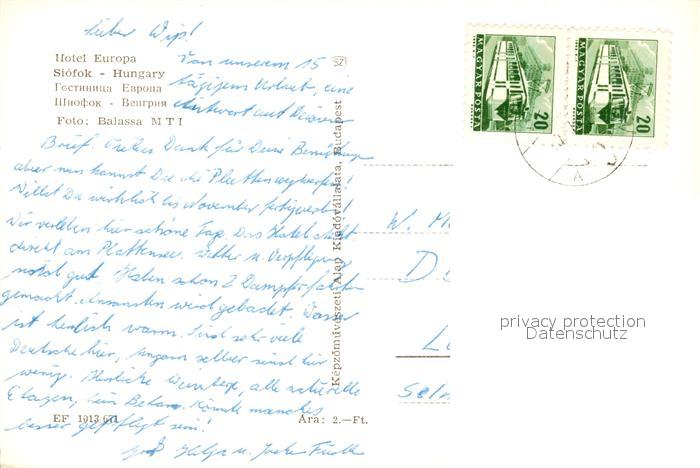 Lieber Wip!
Hotel Europa
Siófok - Hungary
Гостиница Европа
Шиофок - Венгрия
Foto: Balassa MTI
Von unserem 15
tägigem Urlaub, eine
Antwort auf Deinen
Brief. Vielen Dank für Deine Bemühung
aber nun kannst Du die Platten wegwerfen!
Willst Du wirklich bis November
Wir verleben hier schöne Tage. Das Hotel steht
direkt am Plattensee. Wetter u. Verpflegung
gut. Haben schon 2 Dampferfahrten
gemacht. Ansonsten wird gebadet. Wasser
ist herrlich warm. Sind sehr viele
Deutsche hier, Ungarn selber sind hier
wenig. Herrliche alle
Etagen, kein Beton. Könnte manches
besser gepflegt sein!
Helga u.
EF 1013/671
Ára: 2.-Ft.
Képzőművészeti Alap Kiadóvállalata, Budapest
SZ
MAGYAR POSTA
20
MAGYAR POSTA
20
W. M
D
L
privacy protection
Datenschutz